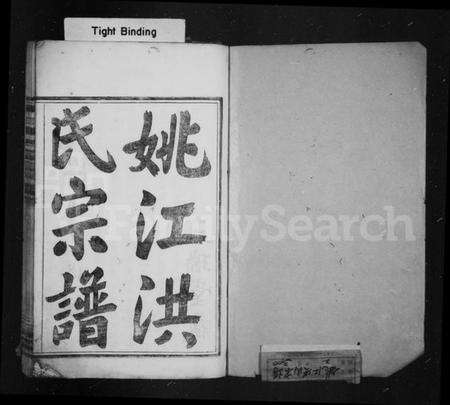 Tight Binding
姚江洪
氏宗譜
FamilySearch